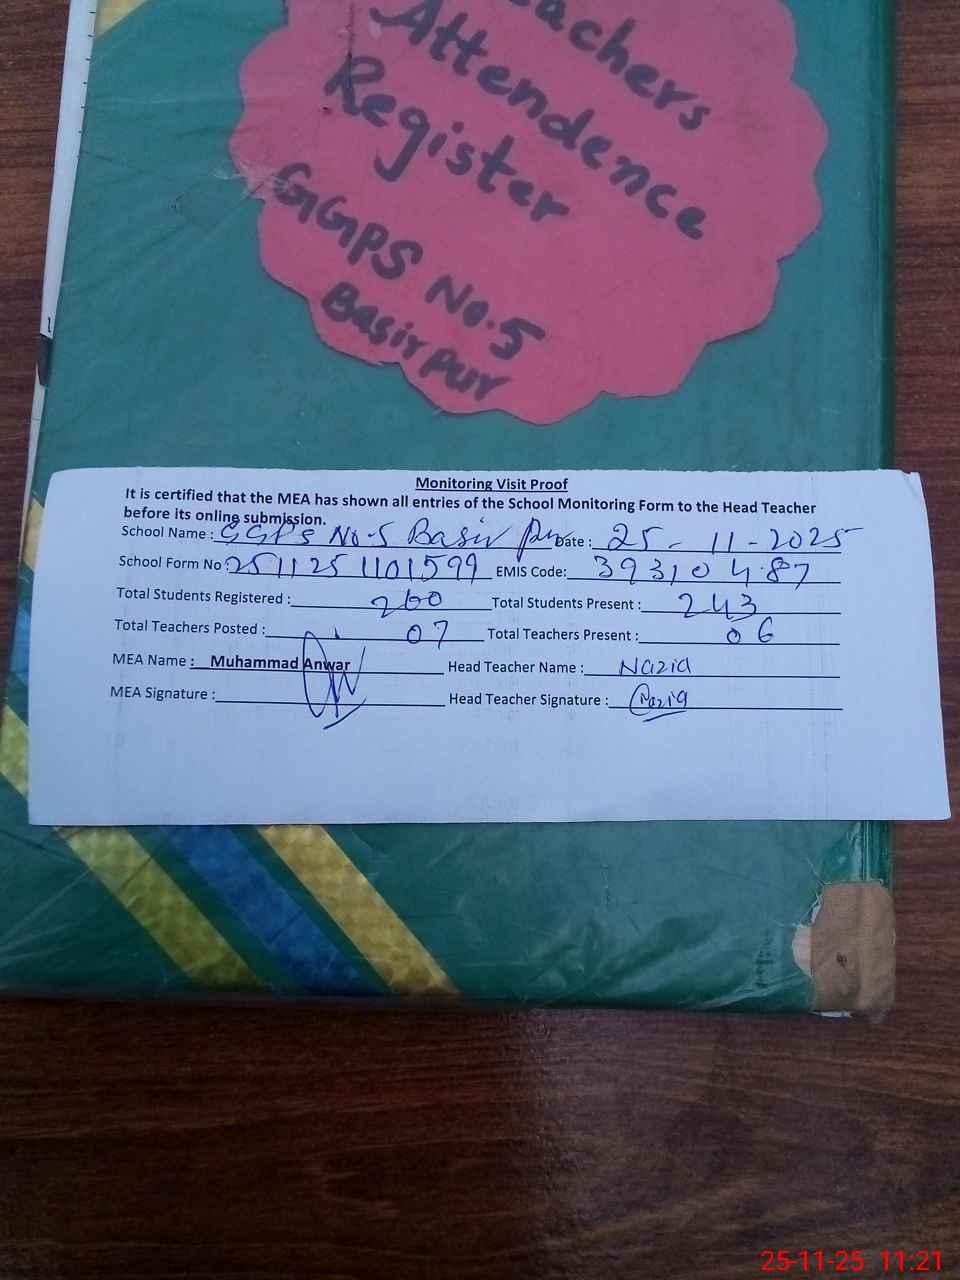 eachers
Attendence
Register
GGPS No.5
Basirpur
Monitoring Visit Proof
It is certified that the MEA has shown all entries of the School Monitoring Form to the Head Teacher
before its online submission.
School Name : GGPS No-5 Basir Pur Date : 25-11-2025
School Form No 2511251101599 EMIS Code: 39310487
Total Students Registered : 260 Total Students Present : 243
Total Teachers Posted : 07 Total Teachers Present : 06
MEA Name : Muhammad Anwar Head Teacher Name : Nazia
MEA Signature : Head Teacher Signature : Nazia
25-11-25 11:21